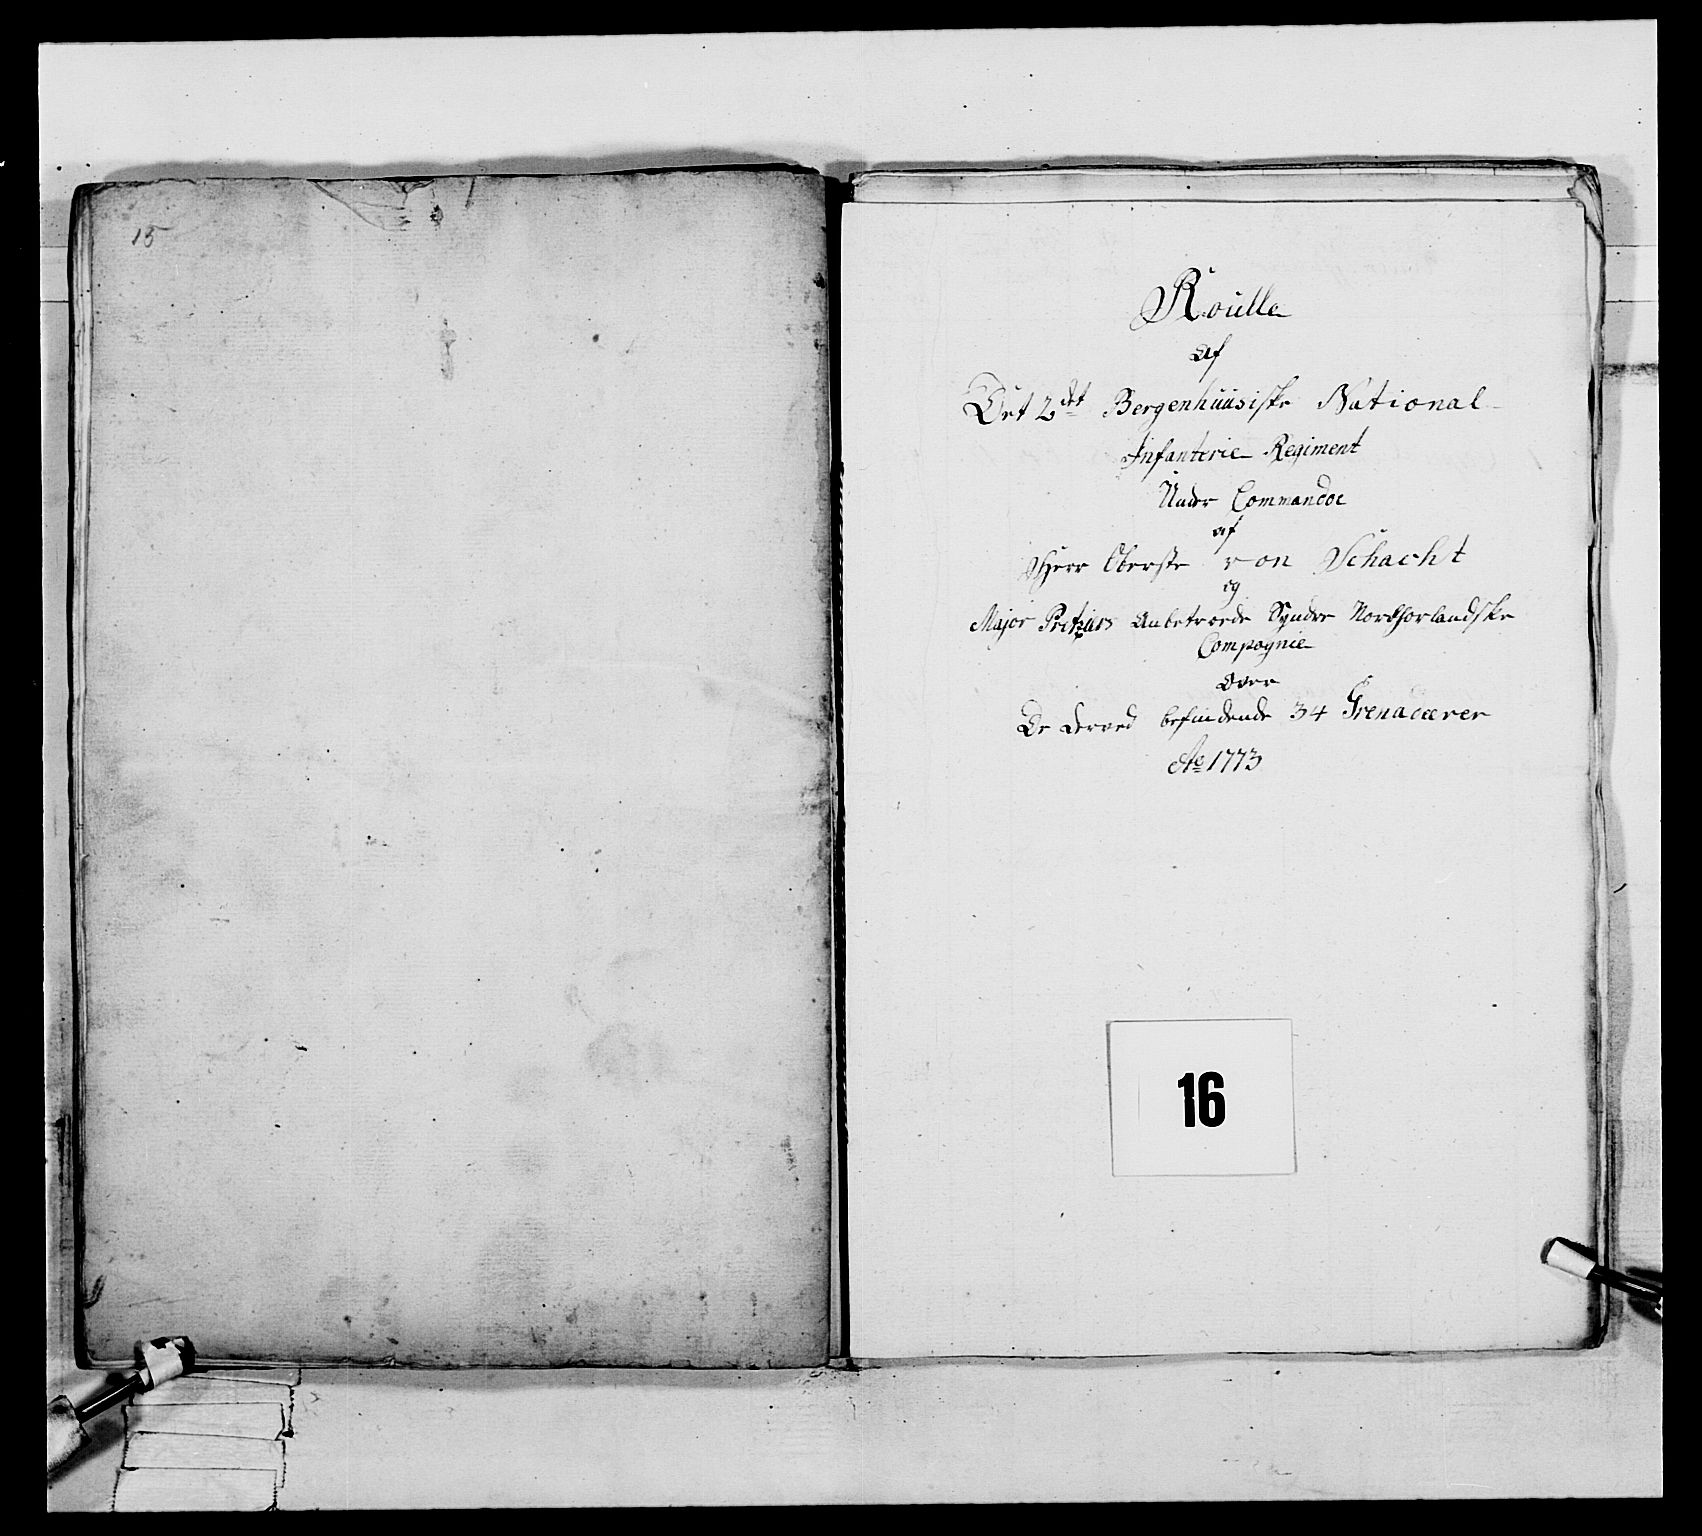 15
Roulle
Af
Det 2det Bergenhuusiske National
Infanterie Regiment
Under Commandoe
af
Herr Oberste von Schacht
og
Major Anbetroede Syndre Nordhorlandske
Compagnie
Over
De derved befindende 34 Grenadeerer
Ao 1773
16